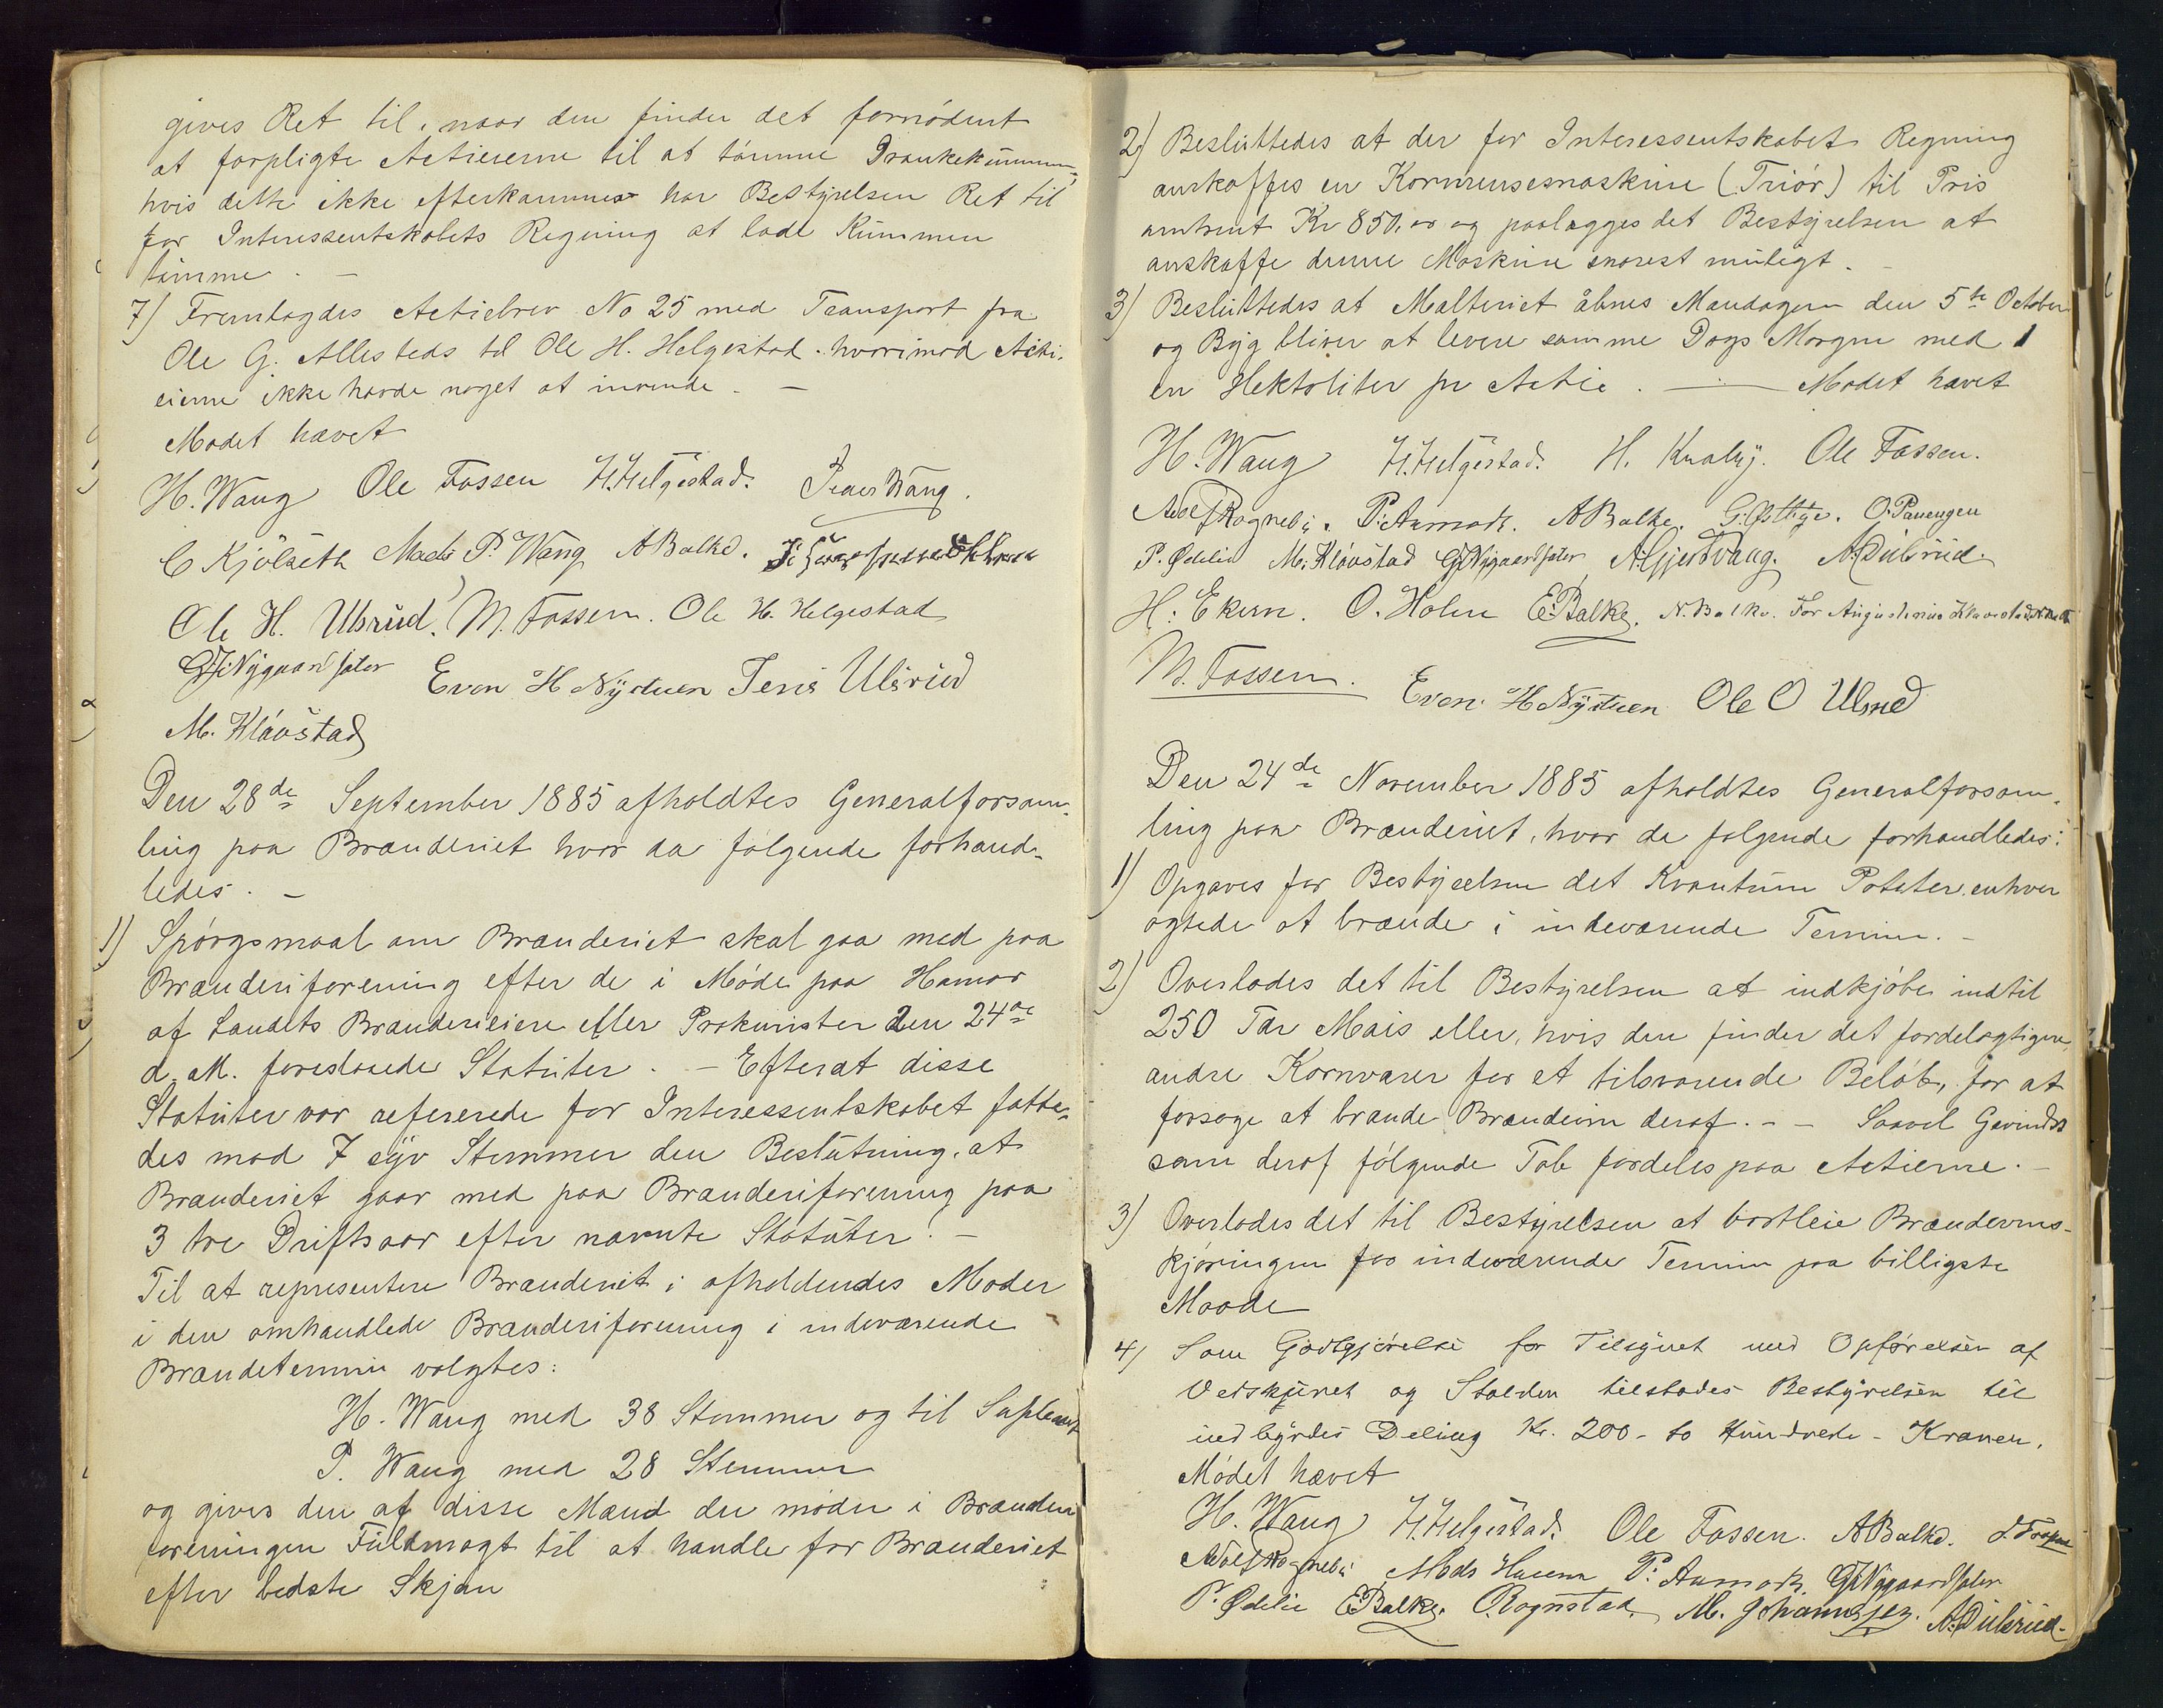 gives Ret til, naar den finder det fornödent
at forpligte Actieierne til at tömme Drankekummen,
hvis dette ikke efterkommes har Bestyrelsen Ret til
for Interessentskabets Regning at lade Kummen
tömme. —
7) Fremlagdes Actiebrev No 25 med Transport fra
Ole G. Allesteds til Ole H. Helgestad. hvorimod Acti-
eierne ikke havde noget at invende. —
Mødet hævet
H. Wang Ole Fossen H. Helgestad. Peder Wang.
C Kjölseth Mads P. Wang A Balke.
Ole H. Ulsrud. M. Fossen. Ole H. Helgestad
G J. Nygaardsæter Even H Nystuen Jens Ulsrud
M. Kløvstad
Den 28de September 1885 afholdtes Generalforsam-
ling paa Brænderiet hvor da følgende forhand-
ledes. —
1) Spörgsmaal om Brænderiet skal gaa med paa
Brænderiforening efter de i Møde paa Hamar
af Landets Brænderieiere eller Prokurister den 24de
d. M. foreslaaede Statuter. — Efterat disse
Statuter var refererede for Interessentskabet fatte-
des mod 7 syv Stemmer den Beslutning, at
Brænderiet gaar med paa Brænderiforening paa
3 tre Driftsaar efter nævnte Statuter. —
Til at representere Brænderiet i afholdendes Møder
i den omhandlede Brænderiforening i indeværende
Brændetermin valgtes:
H. Wang med 38 Stemmer og til Supleant
P. Wang med 28 Stemmer
og gives den af disse Mænd der møder i Brænderi
foreningen Fuldmagt til at handle for Brænderiet
efter bedste Skjøn
2) Besluttedes at der for Interessentskabets Regning
anskaffes en Kornrensemaskine (Triör) til Pris
omtrent Kr 850,00 og paalægges det Bestyrelsen at
anskaffe denne Maskine snarest muligt. —
3) Besluttedes at Malteriet åbnes Mandagen den 5te October
og Byg bliver at levere samme Dags Morgen med 1
en Hektoliter pr Actie. — Mødet hævet
H. Wang H. Helgestad. H. Kraby. Ole Fossen.
Adolf Rogneby. P. Aamodt. A Balke. G. Østhge. O. Panengen
P. Ødelie M. Kløvstad G J Nygaardsæter A. Gjerdvang. A. Dulsrud.
H. Ekern. O. Holm E. Balke. N. Balke. For Augustinus Kløvstad
M. Fossen. Even H Nystuen Ole O Ulsrud
Den 24de November 1885 afholdtes Generalforsam-
ling paa Brænderiet, hvor de følgende forhandledes:
1) Opgaves for Bestyrelsen det Kvantum Poteter, enhver
agtede at brænde i indeværende Termin. —
2) Overlodes det til Bestyrelsen at indkjöbe indtil
250 Tdr Mais eller, hvis den finder det fordelagtigere,
andre Kornvarer for et tilsvarende Beløb, for at
forsøge at brænde Brændevin deraf. — Saavel Gevindst
som deraf følgende Tab fordeles paa Actierne. —
3) Overlodes det til Bestyrelsen at bortleie Brændevins-
kjøringen for indeværende Termin paa billigste
Maade
4) Som Godtgjörelse for Tilsynet med Opførelsen af
Vedskjuret og Stalden tilstodes Bestyrelsen til
indbyrdes Deling Kr. 200 - to Hundrede - Kroner.
Mødet hævet
H. Wang H. Helgestad. Ole Fossen. A Balke.
Adolf Rogneby Mads Hasenn P. Aamodt. G J Nygaardsæter
P. Ødelie E. Balke. O. Rognstad. M. Johannesen. A. Dulsrud.